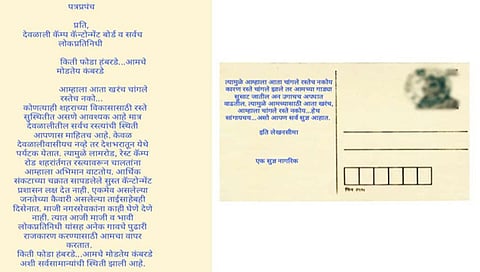 पत्रप्रपंच
प्रति,
देवळाली कॅम्प कॅन्टोन्मेंट बोर्ड व सर्वच
लोकप्रतिनिधी
किती फोडा हंबरडे...आमचे
मोडतेय कंबरडे
आम्हाला आता खरंच चांगले
रस्तेच नको...
कोणत्याही शहराच्या विकासासाठी रस्ते
सुस्थितीत असणे आवश्यक आहे मात्र
देवळालीतील सर्वच रस्त्यांची स्थिती
आपणास माहितच आहे. केवळ
देवळालीवासीयच नव्हे तर देशभरातून येथे
पर्यटक येतात. त्यामुळे लामरोड, रेस्ट कॅम्प
रोड शहरांतर्गत रस्त्यावरून चालतांना
आम्हाला अभिमान वाटतोय. आर्थिक
संकटाच्या चक्रात सापडलेले सुस्त कॅन्टोमेंट
प्रशासन लक्ष देत नाही. एकमेव असलेल्या
जनतेच्या कैवारी असलेल्या ताईसाहेबही
दिसेनात. माजी नगरसेवकांना काही घेणे देणे
नाही. त्यात आजी माजी व भावी
लोकप्रतिनिधी यांसह अनेक गावचे पुढारी
राजकारण करण्यासाठी आमचा वापर
करतात.
किती फोडा हंबरडे...आमचे मोडतेय कंबरडे
अशी सर्वसामान्यांची स्थिती झाली आहे.
त्यामुळे आम्हाला आता चांगले रस्तेच नकोय
कारण रस्ते चांगले झाले तर आमच्या गाड्या
सुसाट जातील अन उगाचच अपघात
वाढतील. त्यामुळे आमच्यासाठी आता खरंच,
आम्हाला चांगले रस्ते नकोय...हेच
सांगायचय...असो आपण सर्व सुज्ञ आहात.
इति लेखनसीमा
एक सुज्ञ नागरिक
पिन